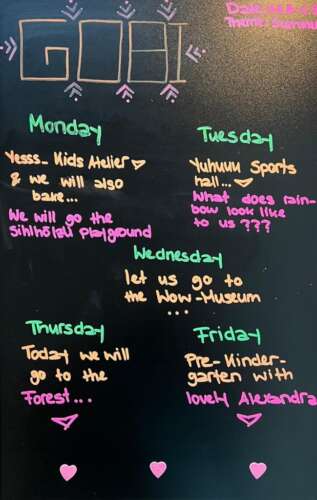 GOBI
Date
Theme: Summer
Monday
Yesss- Kids Atelier
& we will also
bake...
We will go the
Sihlhölzli Playground
Tuesday
Yuhuuu Sports
hall...
What does rain-
bow look like
to us???
Wednesday
let us go to
the Wow-Museum
...
Thursday
Today we will
go to the
Forest...
Friday
Pre-Kinder-
garten with
lovely Alexandra